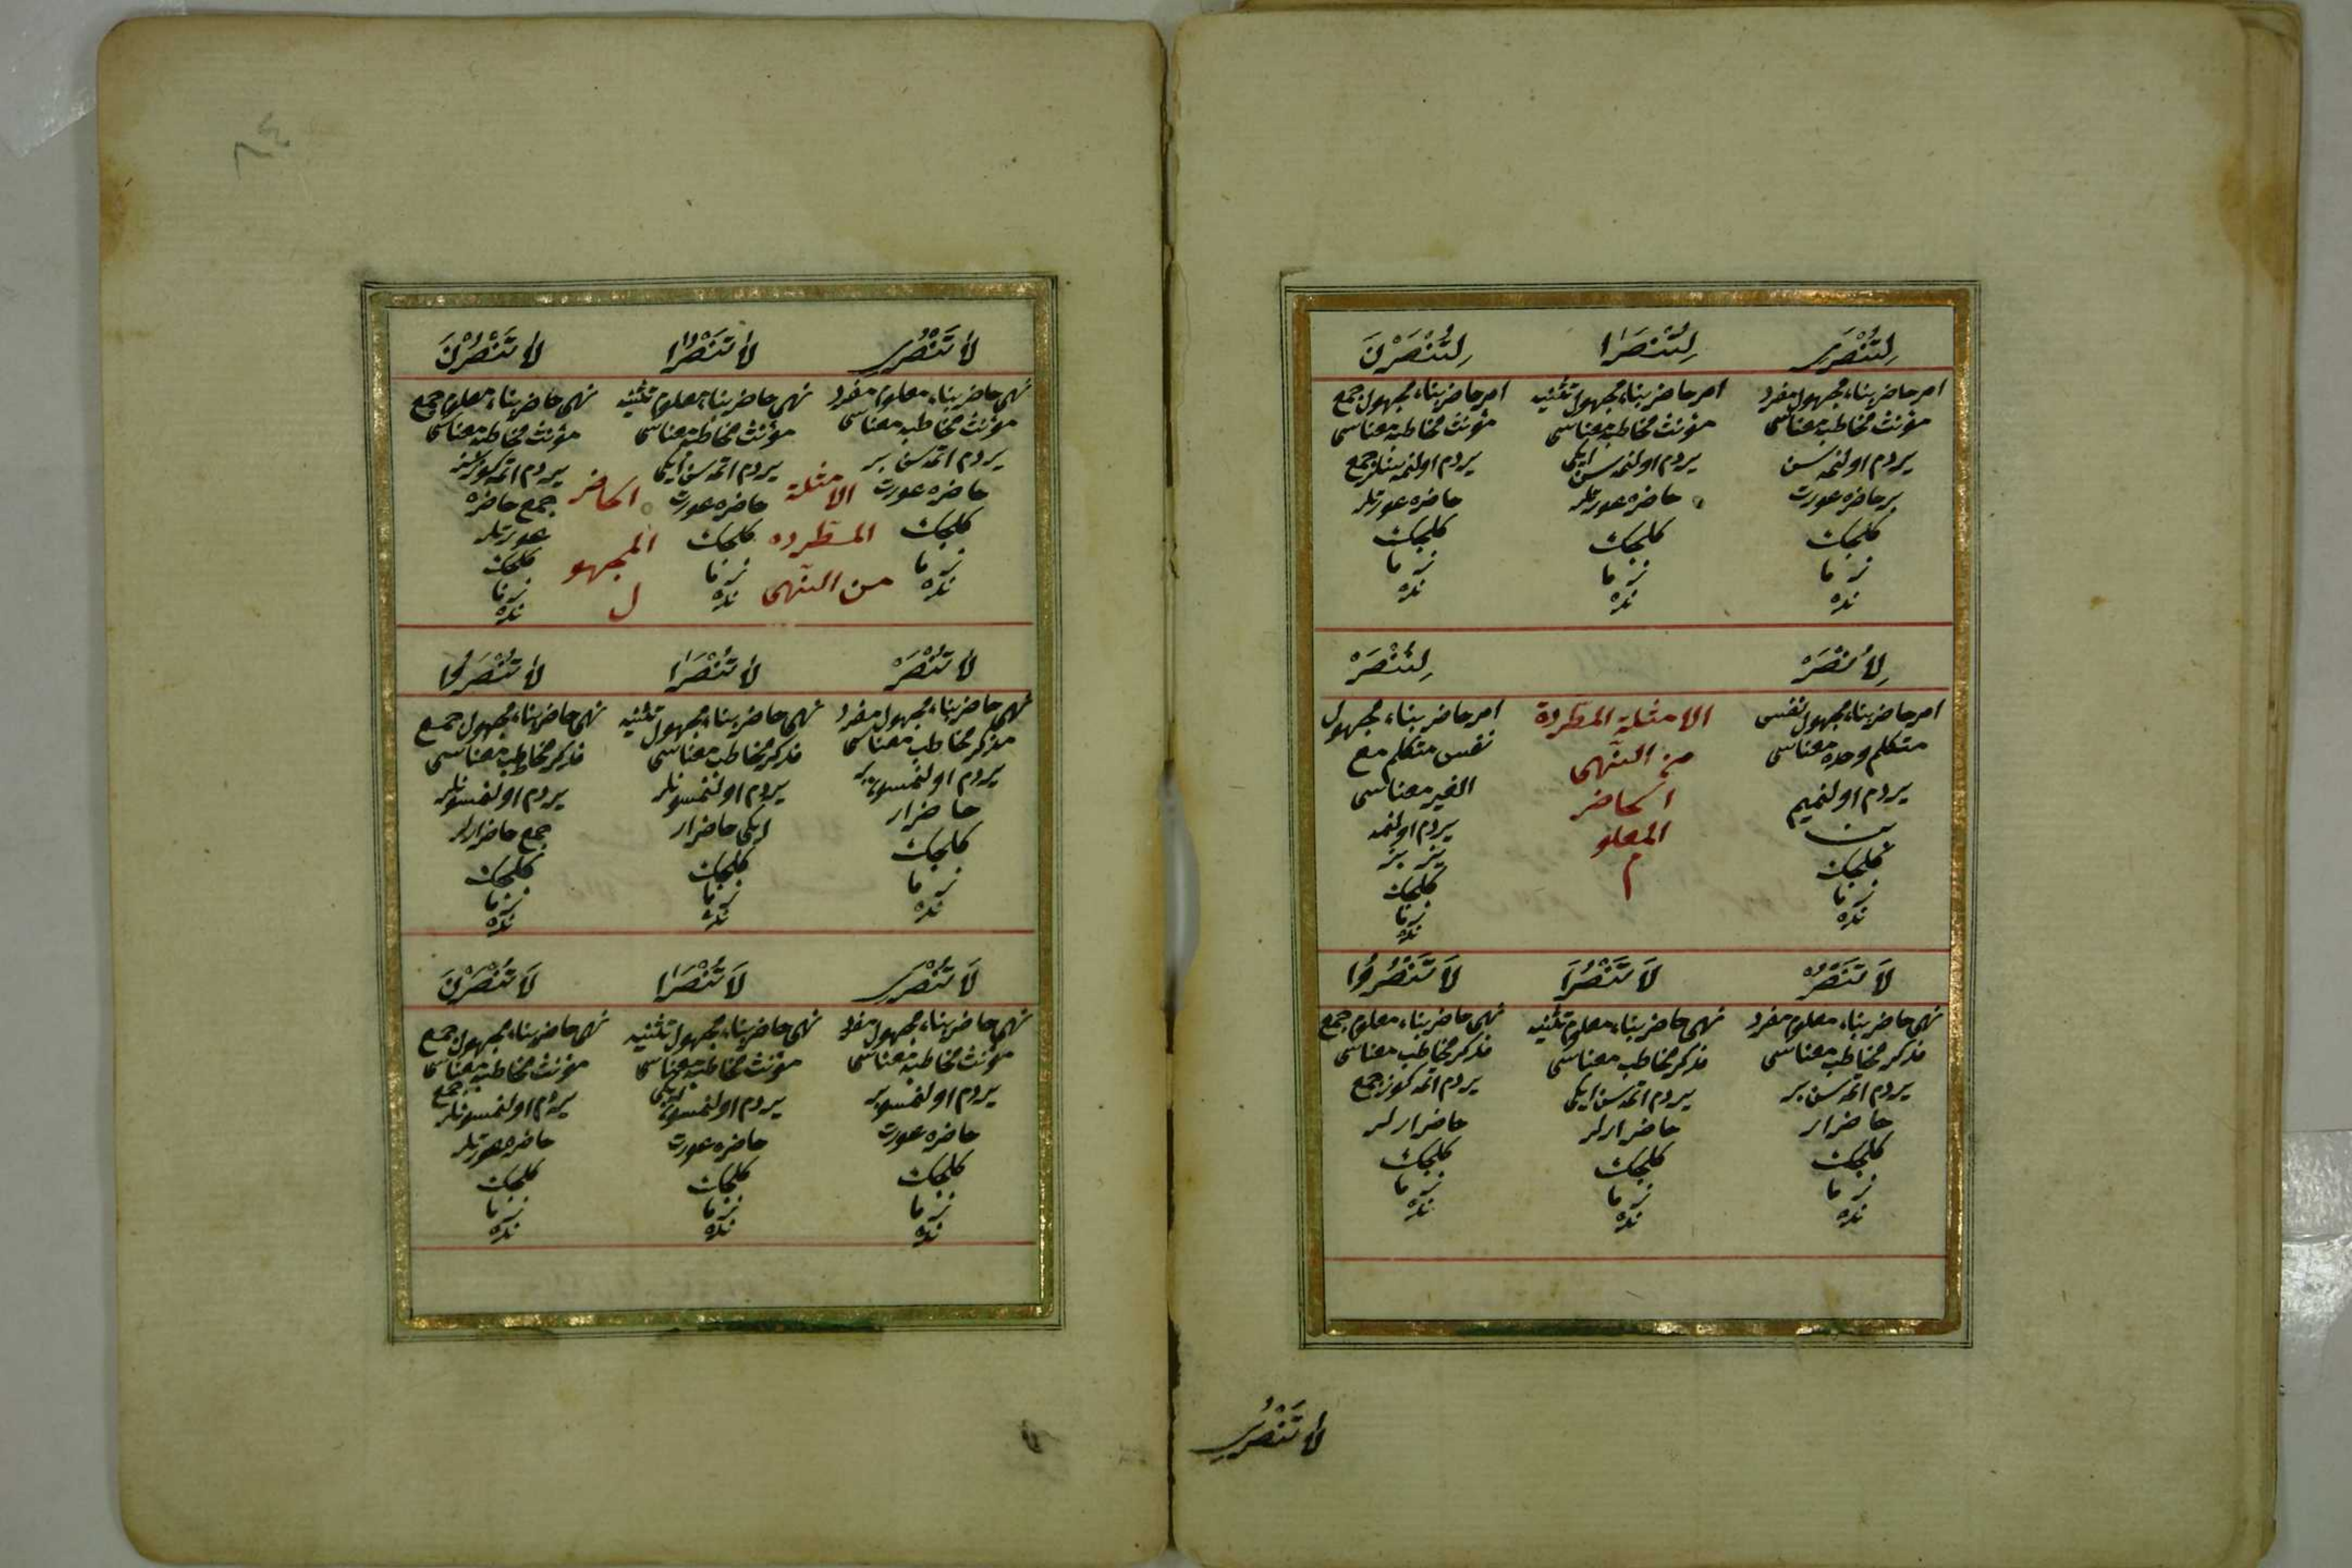 لِتُنْصَرِى
لِتُنْصَرَا
لِتُنْصَرْنَ
امر حاضر بناء مجهول مفرد
مؤنث مخاطبه معناسى
يردم اولنمه سن
بر حاضره عورت
كلجك
زما
نده
امر حاضر بناء مجهول تثنيه
مؤنث مخاطبه معناسى
يردم اولنمه سن ايكى
حاضره عورتلر
كلجك
زما
نده
امر حاضر بناء مجهول جمع
مؤنث مخاطبه معناسى
يردم اولنمه سنلر جمع
حاضره عورتلر
كلجك
زما
نده
لِأُنْصَرْ
لِنُنْصَرْ
امر حاضر بناء مجهول نفس
متكلم وحده معناسى
يردم اولنميم
بن
كلجك
زما
نده
الامثلة المطردة
من النهى
الحاضر
المعلو
م
امر حاضر بناء مجهول
نفس متكلم مع
الغير معناسى
يردم اولنمه
يز بز
كلجك
زما
نده
لَا تَنْصُرْ
لَا تَنْصُرَا
لَا تَنْصُرُوا
نهى حاضر بناء معلوم مفرد
مذكر مخاطب معناسى
يردم اتمه سن بر
حاضر ار
كلجك
زما
نده
نهى حاضر بناء معلوم تثنيه
مذكر مخاطب معناسى
يردم اتمه سن ايكى
حاضر ارلر
كلجك
زما
نده
نهى حاضر بناء معلوم جمع
مذكر مخاطب معناسى
يردم اتمه كوز جمع
حاضر ارلر
كلجك
زما
نده
لَا تَنْصُرِى
٨٤
لَا تَنْصُرِى
لَا تَنْصُرَا
لَا تَنْصُرْنَ
نهى حاضر بناء معلوم مفرد
مؤنث مخاطبه معناسى
يردم اتمه سن بر
حاضره عورت
كلجك
زما
نده
الامثلة
المطرده
من النهى
نهى حاضر بناء معلوم تثنيه
مؤنث مخاطبه معناسى
يردم اتمه سن ايكى
حاضره عورت
كلجك
زما
نده
الحاضر
المجهو
ل
نهى حاضر بناء معلوم جمع
مؤنث مخاطبه معناسى
يردم اتمه
جمع حاضره
عورتلر
كلجك
زما
نده
لَا تُنْصَرْ
لَا تُنْصَرَا
لَا تُنْصَرُوا
نهى حاضر بناء مجهول مفرد
مذكر مخاطب معناسى
يردم اولنمسون بر
حاضر ار
كلجك
زما
نده
نهى حاضر بناء مجهول تثنيه
مذكر مخاطب معناسى
يردم اولنمسونلر
ايكى حاضر ار
كلجك
زما
نده
نهى حاضر بناء مجهول جمع
مذكر مخاطب معناسى
يردم اولنمسونلر
جمع حاضر ارلر
كلجك
زما
نده
لَا تُنْصَرِى
لَا تُنْصَرَا
لَا تُنْصَرْنَ
نهى حاضر بناء مجهول مفرد
مؤنث مخاطبه معناسى
يردم اولنمسون بر
حاضره عورت
كلجك
زما
نده
نهى حاضر بناء مجهول تثنيه
مؤنث مخاطبه معناسى
يردم اولنمسون ايكى
حاضره عورت
كلجك
زما
نده
نهى حاضر بناء مجهول جمع
مؤنث مخاطبه معناسى
يردم اولنمسونلر جمع
حاضره عورتلر
كلجك
زما
نده